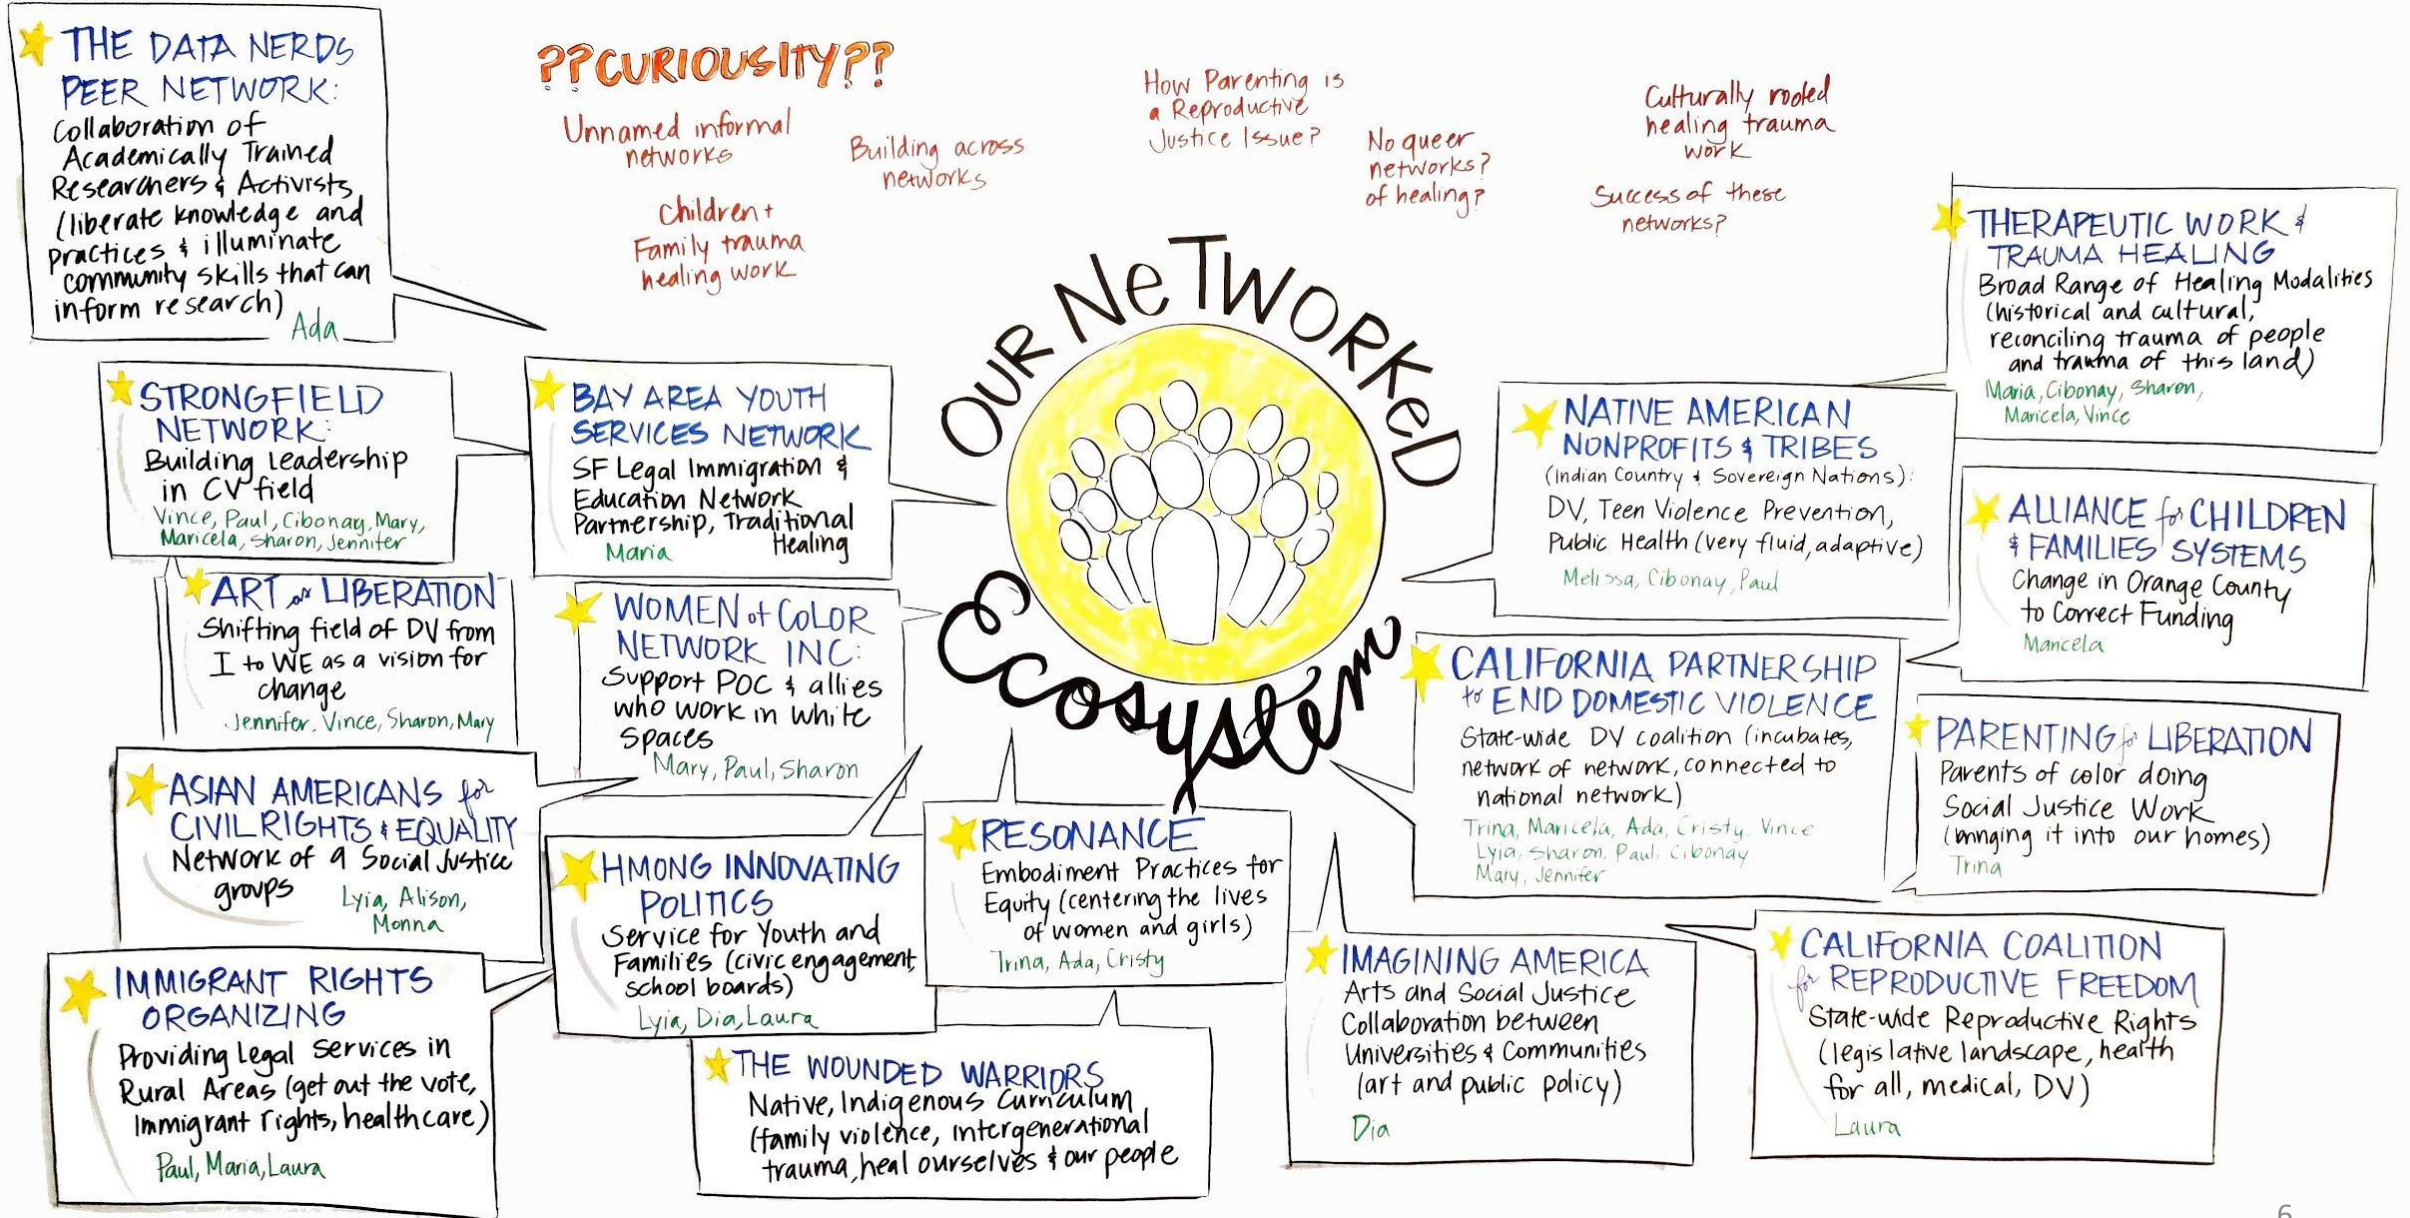 THE DATA NERDS
PEER NETWORK:
Collaboration of
Academically Trained
Researchers & Activists
(liberate knowledge and
practices & illuminate
community skills that can
inform research)
Ada
??CURIOUSITY??
Unnamed informal
networks
Building across
networks
Children +
Family trauma
healing work
How Parenting is
a Reproductive
Justice Issue?
No queer
networks?
of healing?
Culturally rooted
healing trauma
work
Success of these
networks?
OUR NeTWORKeD
Ecosystem
STRONGFIELD
NETWORK:
Building leadership
in CV field
Vince, Paul, Cibonay, Mary,
Maricela, Sharon, Jennifer
BAY AREA YOUTH
SERVICES NETWORK
SF Legal Immigration &
Education Network
Partnership, Traditional
Healing
Maria
ART as LIBERATION
Shifting field of DV from
I to WE as a vision for
change
Jennifer, Vince, Sharon, Mary
WOMEN of COLOR
NETWORK INC:
Support POC & allies
who work in white
spaces
Mary, Paul, Sharon
ASIAN AMERICANS for
CIVIL RIGHTS & EQUALITY
Network of 9 Social Justice
groups
Lyia, Alison,
Monna
HMONG INNOVATING
POLITICS
Service for Youth and
Families (civic engagement,
school boards)
Lyia, Dia, Laura
IMMIGRANT RIGHTS
ORGANIZING
Providing Legal Services in
Rural Areas (get out the vote,
Immigrant rights, healthcare)
Paul, Maria, Laura
RESONANCE
Embodiment Practices for
Equity (centering the lives
of women and girls)
Trina, Ada, Cristy
THE WOUNDED WARRIORS
Native, Indigenous Curriculum
(family violence, intergenerational
trauma, heal ourselves & our people
THERAPEUTIC WORK &
TRAUMA HEALING
Broad Range of Healing Modalities
(historical and cultural,
reconciling trauma of people
and trauma of this land)
Maria, Cibonay, Sharon,
Maricela, Vince
NATIVE AMERICAN
NONPROFITS & TRIBES
(Indian Country & Sovereign Nations):
DV, Teen Violence Prevention,
Public Health (very fluid, adaptive)
Melissa, Cibonay, Paul
ALLIANCE for CHILDREN
& FAMILIES SYSTEMS
Change in Orange County
to Correct Funding
Maricela
CALIFORNIA PARTNERSHIP
to END DOMESTIC VIOLENCE
State-wide DV coalition (incubates,
network of network, connected to
national network)
Trina, Maricela, Ada, Cristy, Vince
Lyia, Sharon, Paul, Cibonay
Mary, Jennifer
PARENTING for LIBERATION
Parents of color doing
Social Justice Work
(bringing it into our homes)
Trina
IMAGINING AMERICA
Arts and Social Justice
Collaboration between
Universities & Communities
(art and public policy)
Dia
CALIFORNIA COALITION
for REPRODUCTIVE FREEDOM
State-wide Reproductive Rights
(legislative landscape, health
for all, medical, DV)
Laura
6